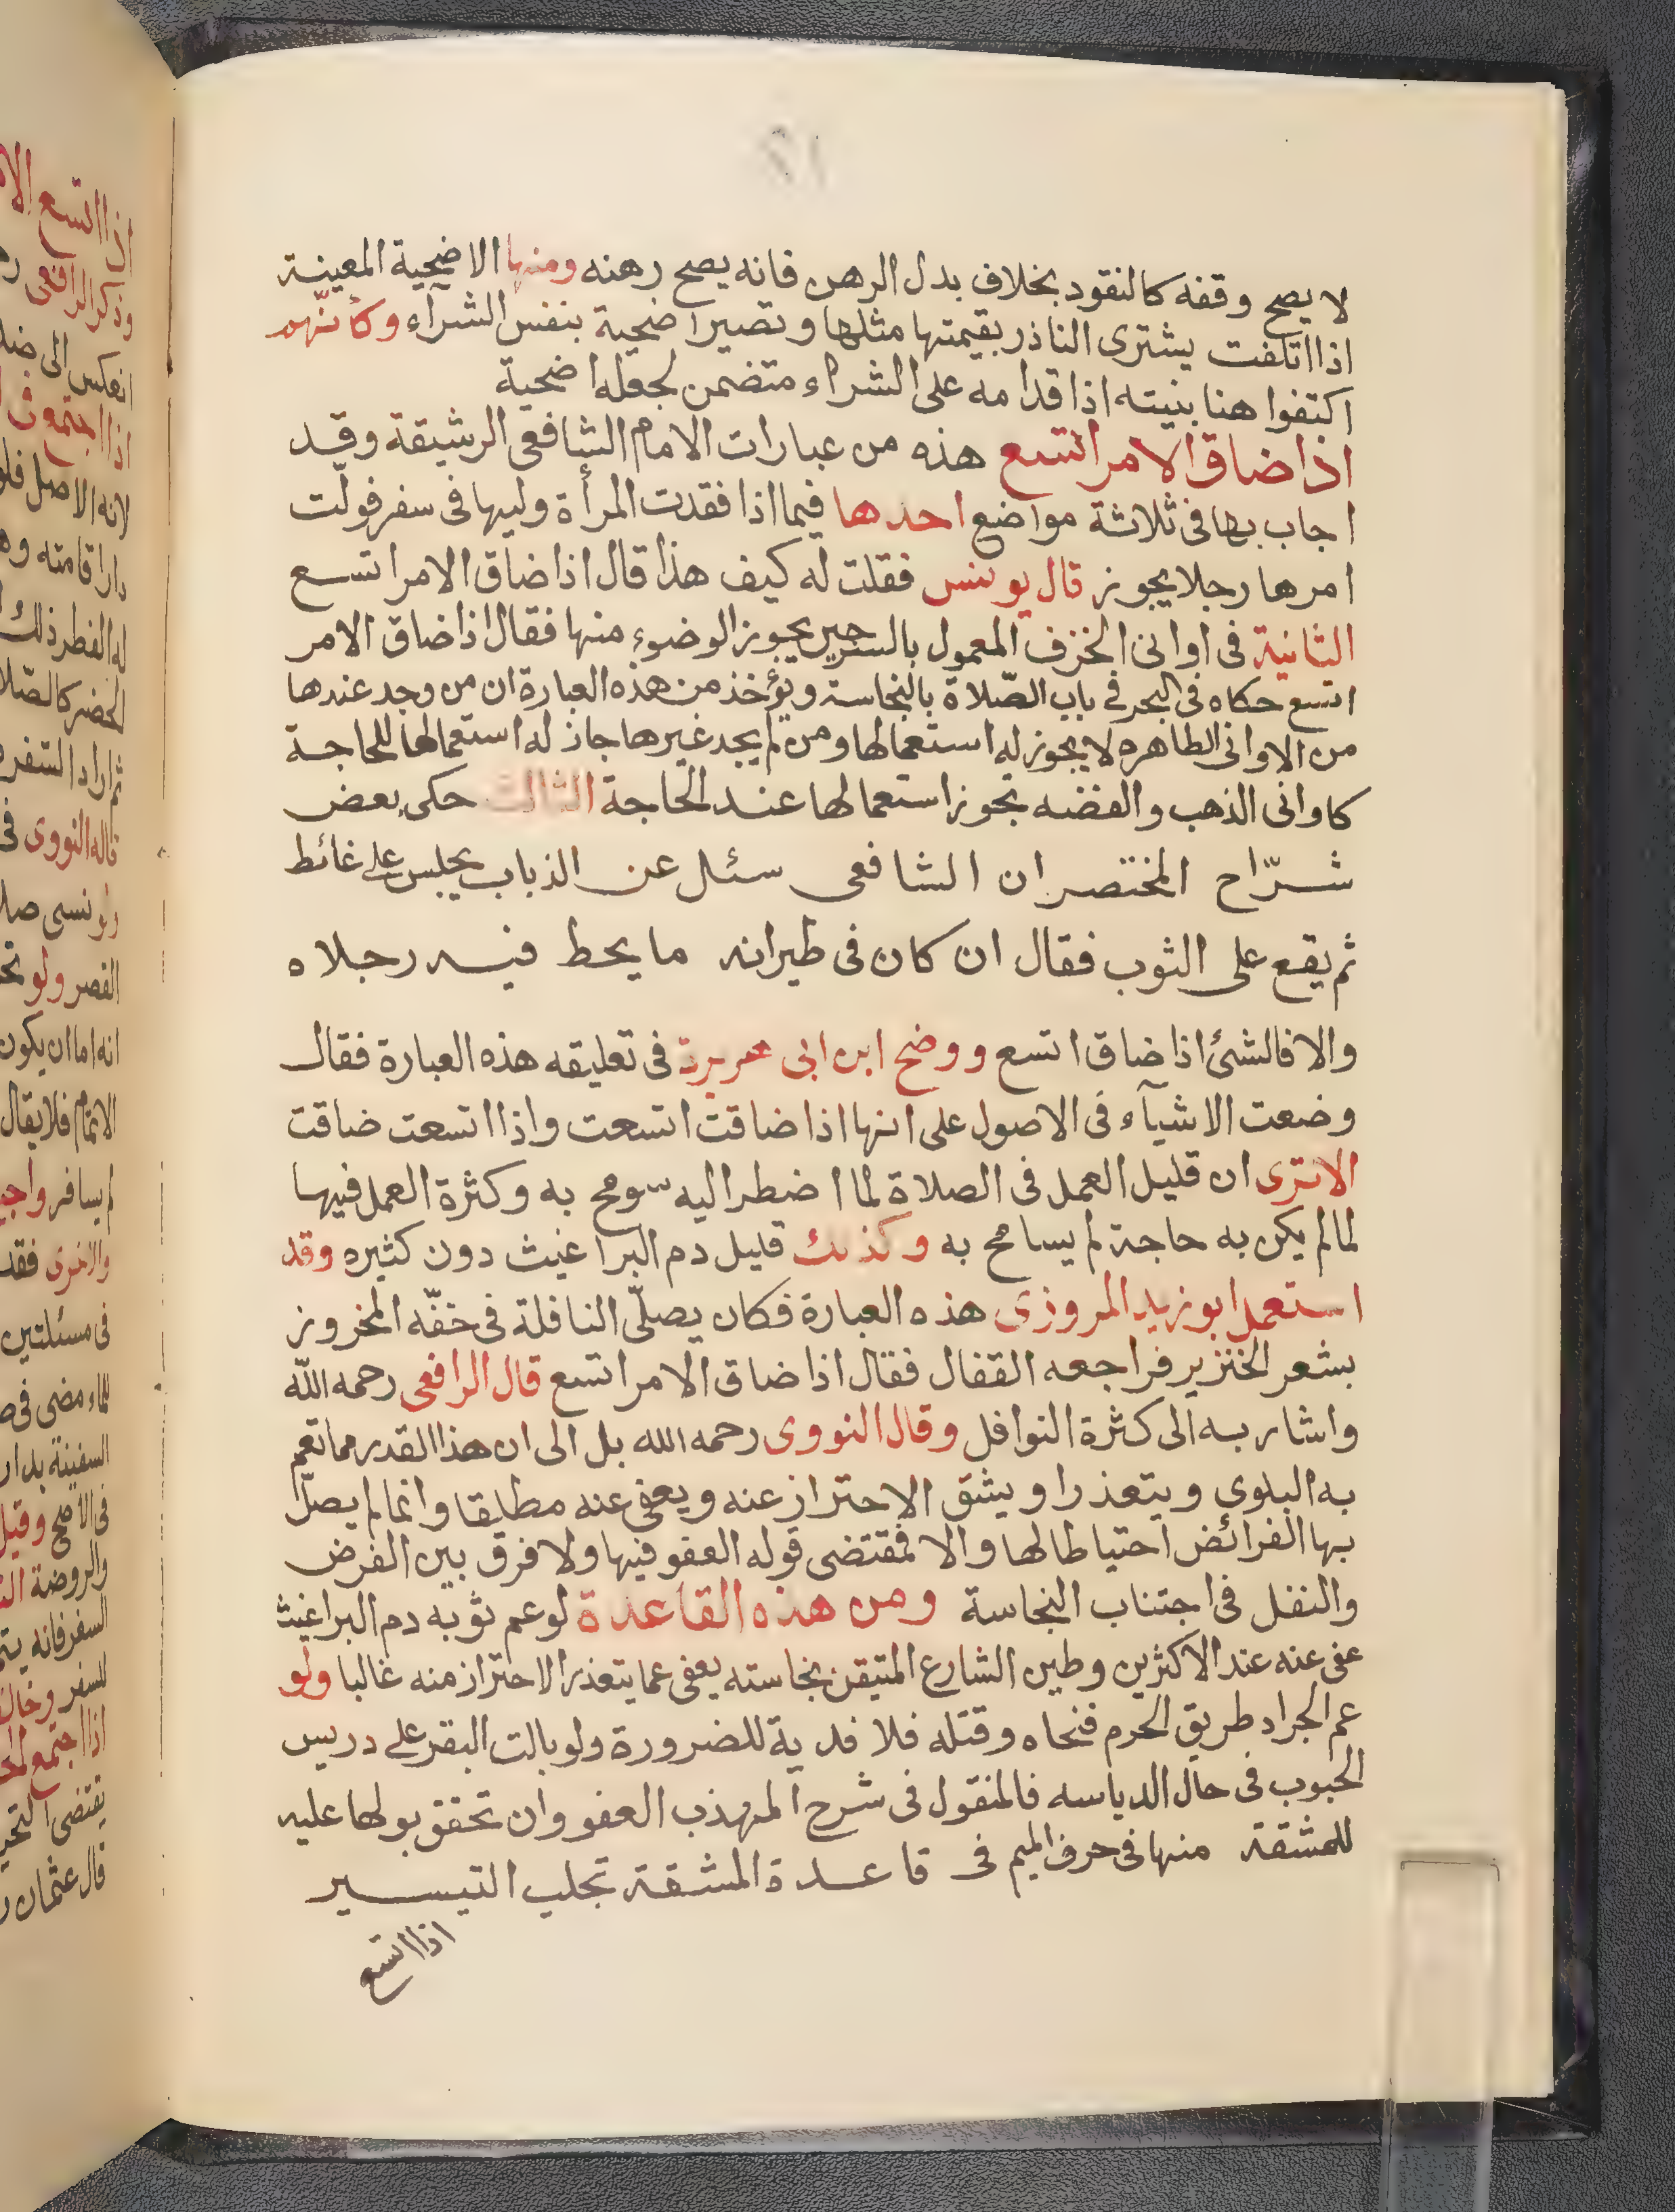 لا يصح وقفه كالنقود بخلاف بدل الرهن فانه يصح رهنه ومنها الاضحية المعينة
اذا اتلفت يشترى الناذر بقيمتها مثلها وتصير اضحية بنفس الشرآء وكأنّهم
اكتفوا هنا بنيته اذا قدامه على الشراء متضمن لجعله اضحية
اذا ضاق الامر اتسع هذه من عبارات الامام الشافعى الرشيقة وقد
اجاب بها فى ثلاثة مواضع احدها فيما اذا فقدت المرأة وليها فى سفر فولّت
امرها رجلا يجوز قال يونس فقلت له كيف هذا قال اذا ضاق الامر اتسع
الثانية فى اوانى الخزف المعمول بالسرجين يجوز الوضوء منها فقال اذا ضاق الامر
اتسع حكاه فى البحر فى باب الصّلاة بالنجاسة ويؤخذ من هذه العبارة ان من وجد عندها
من الاوانى الطاهره لا يجوز له استعمالها ومن لم يجد غيرها جاز له استعمالها للحاجة
كاوانى الذهب والفضه يجوز استعمالها عند الحاجة الثالث حكى بعض
شرّاح المختصر ان الشافعى سئل عن الذباب يجلس على غائط
ثم يقع على الثوب فقال ان كان فى طيرانه ما يحط فيه رجلاه
والا فالشئ اذا ضاق اتسع ووضح ابن ابى هريرة فى تعليقه هذه العبارة فقال
وضعت الاشيآء فى الاصول على انها اذا ضاقت اتسعت واذا اتسعت ضاقت
الا ترى ان قليل العمل فى الصلاة لما اضطر اليه سومح به وكثرة العمل فيها
لما لم يكن به حاجة لم يسامح به وكذلك قليل دم البراغيث دون كثيره وقد
استعمل ابو زيد المروزى هذه العبارة فكان يصلّى النافلة فى خفّه المخروز
بشعر الخنزير فراجعه القفال فقال اذا ضاق الامر اتسع قال الرافعى رحمه اللّه
واشار به الى كثرة النوافل وقال النووى رحمه الله بل الى ان هذا القدر مما تعم
به البلوى ويتعذر او يشق الاحتراز عنه ويعفى عنه مطلقا وانما لم يصلّ
بها الفرائض احتياطا لها والا فمقتضى قوله العفو فيها ولا فرق بين الفرض
والنفل فى اجتناب النجاسة ومن هذه القاعدة لو عم ثوبه دم البراغيث
عفى عنه عند الاكثرين وطين الشارع المتيقن نجاسته يعفى عما يتعذر الاحتراز منه غالبا ولو
عم الجراد طريق الحرم فنحاه وقتله فلا فدية للضرورة ولو بالت البقر على دريس
الحبوب فى حال الدياسه فالمنقول فى شرح المهذب العفو وان تحقق بولها عليه
للمشقة منها فى حرف الميم فى قاعدة المشقة تجلب التيسير
اذا اتسع